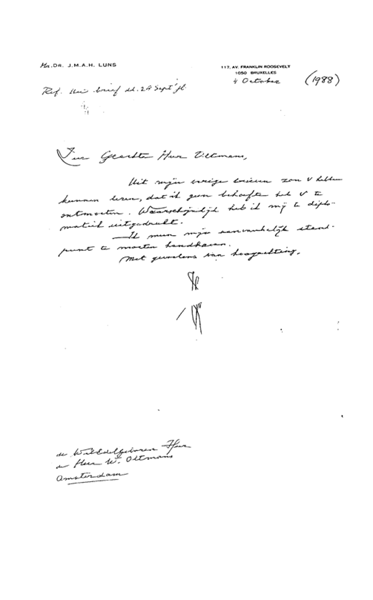 Mr. DR. J.M.A.H. LUNS
117, AV. FRANKLIN ROOSEVELT
1050 BRUXELLES
4 Octobre (1988)
Ref. Uw brief d.d. 28 Sept. jl
Zeer Geachte Heer Oltmans,
Uit mijn vorige brieven zou U hebben
kunnen leren, dat ik geen behoefte heb U te
ontmoeten. Waarschijnlijk heb ik mij te diplo-
matiek uitgedrukt.
Ik meen mijn aanvankelijk stand-
punt te moeten handhaven.
Met gevoelens van hoogachting,
de Weledelgeboren Heer
de Heer W. Oltmans
Amsterdam